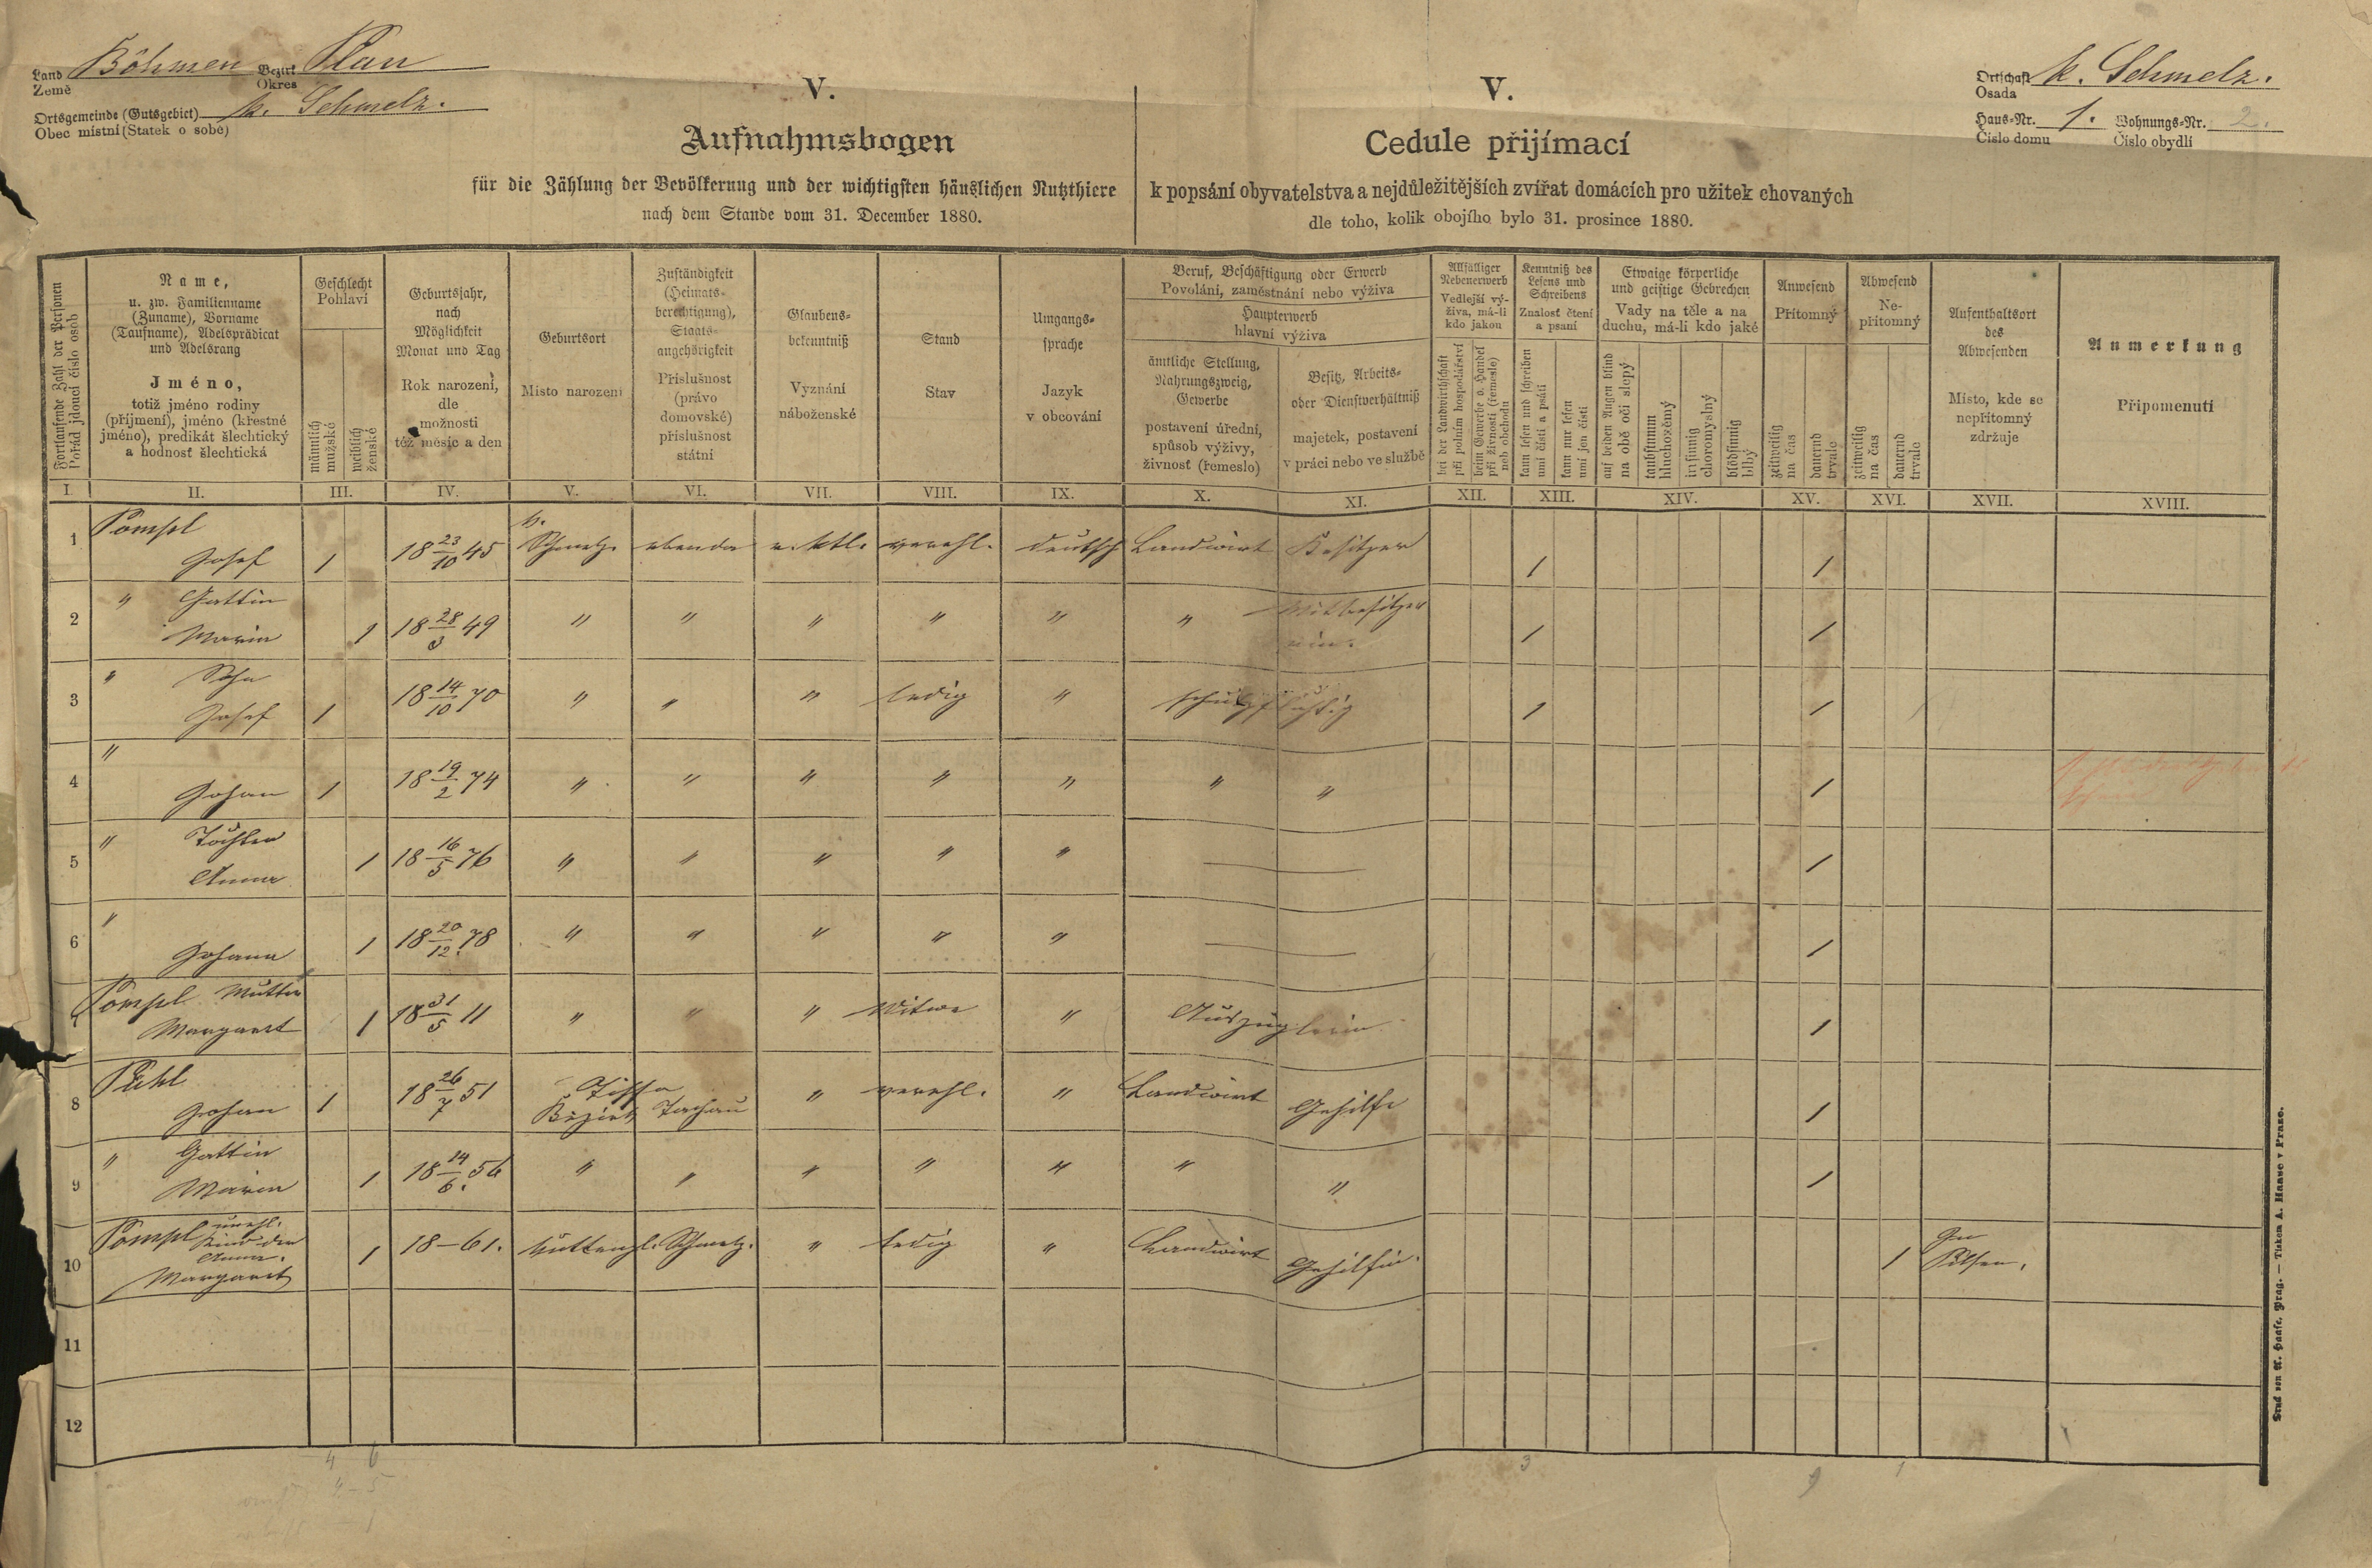 Land Böhmen Bezirk Plan
Země Okres
Ortsgemeinde (Gutsgebiet) k. Schmelz.
Obec místní (Statek o sobě)
V.
Aufnahmsbogen
für die Zählung der Bevölkerung und der wichtigsten häuslichen Nutzthiere
nach dem Stande vom 31. December 1880.
V.
Cedule přijímací
k popsání obyvatelstva a nejdůležitějších zvířat domácích pro užitek chovaných
dle toho, kolik obojího bylo 31. prosince 1880.
Ortschaft k. Schmelz.
Osada
Haus-Nr. 1. Wohnungs-Nr. 2.
Číslo domu Číslo obydlí
Fortlaufende Zahl der Personen
Pořád jdoucí číslo osob
Name,
u. zw. Familienname
(Zuname), Vorname
(Taufname), Adelsprädicat
und Adelsrang
Jméno,
totiž jméno rodiny
(příjmení), jméno (křestné
jméno), predikát šlechtický
a hodnosť šlechtická
Geschlecht
Pohlaví
männlich
mužské
weiblich
ženské
Geburtsjahr,
nach
Möglichkeit
Monat und Tag
Rok narození,
dle
možnosti
též měsíc a den
Geburtsort
Místo narození
Zuständigkeit
(Heimats-
berechtigung),
Staats-
angehörigkeit
Příslušnost
(právo
domovské)
příslušnost
státní
Glaubens-
bekenntniß
Vyznání
náboženské
Stand
Stav
Umgangs-
sprache
Jazyk
v obcování
Beruf, Beschäftigung oder Erwerb
Povolání, zaměstnání nebo výživa
Haupterwerb
hlavní výživa
ämtliche Stellung,
Nahrungszweig,
Gewerbe
postavení úřední,
spůsob výživy,
živnosť (řemeslo)
Besitz, Arbeits-
oder Dienstverhältniß
majetek, postavení
v práci nebo ve službě
Allfälliger
Nebenerwerb
Vedlejší vý-
živa, má-li
kdo jakou
bei der Landwirthschaft
při polním hospodářství
beim Gewerbe o. Handel
při živnosti (řemesle)
neb obchodu
Kenntniß des
Lesens und
Schreibens
Znalosť čtení
a psaní
kann lesen und schreiben
umí čísti a psáti
kann nur lesen
umí jen čísti
Etwaige körperliche
und geistige Gebrechen
Vady na těle a na
duchu, má-li kdo jaké
auf beiden Augen blind
na obě oči slepý
taubstumm
hluchoněmý
irrsinnig
choromyslný
blödsinnig
blbý
Anwesend
Přítomný
zeitweilig
na čas
dauernd
trvale
Abwesend
Ne-
přítomný
zeitweilig
na čas
dauernd
trvale
Aufenthaltsort
des
Abwesenden
Místo, kde se
nepřítomný
zdržuje
Anmerkung
Připomenutí
I. II. III. IV. V. VI. VII. VIII. IX. X. XI. XII. XIII. XIV. XV. XVI. XVII. XVIII.
1 Pompl
Josef 1 18 23/10 45 k. Schmelz. ebenda r. ktl. verehl. deutsch Landwirt Besitzer 1 1
2 " Gattin
Maria 1 18 28/3 49 " " " " " " Mitbesitzer
in. 1 1
3 " Sohn
Josef 1 18 14/10 70 " " " ledig " schulpflichtig 1 1
4 "
Johan 1 18 19/2 74 " " " " " " " 1
5 " Tochter
Anna 1 18 16/5 76 " " " " " — 1
6 "
Johanna 1 18 20/12. 78 " " " " " — 1
7 Pompl Mutter
Margaret 1 18 31/5 11 " " " Witwe " Auszüglerin 1
8 Pühl
Johan 1 18 26/7 51 Tissa
Bezirk Tachau " verehl. " Landwirt Gehilfe 1
9 " Gattin
Maria 1 18 14/6. 56 " " " " " " " 1
10 Pompl unehl.
Kind der
Anna.
Margaret 1 18–61. Schmelz. " ledig " Landwirt Gehilfin. 1 In
Pilsen.
11
12
4 6
3
9 1
Druck von A. Haase, Prag. — Tiskem A. Haase v Praze.